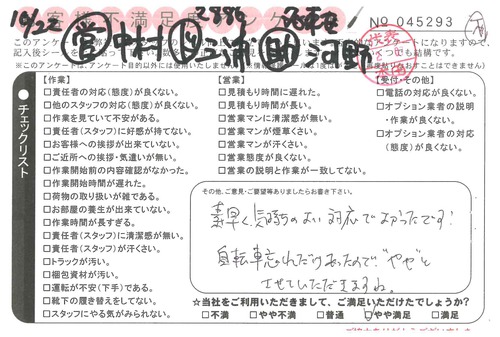 お客様満足度アンケート
10/22 営 中村 助 河野
No 045293
【作業】
□責任者の対応(態度)が良くない。
□他のスタッフの対応(態度)が良くない。
□作業を見ていて不安がある。
□責任者(スタッフ)に好感が持てない。
□お客様への挨拶が出来ていない。
□ご近所への挨拶・気遣いが無い。
□作業開始前の内容確認がなかった。
□作業開始時間が遅れた。
□荷物の取り扱いが雑である。
□お部屋の養生が出来ていない。
□作業時間が長すぎる。
□責任者(スタッフ)に清潔感が無い。
□責任者(スタッフ)が汗くさい。
□トラックが汚い。
□梱包資材が汚い。
□運転が不安(下手)である。
□靴下の履き替えをしてない。
□スタッフにやる気がみられない。
【営業】
□見積もり時間に遅れた。
□見積もり時間が長い。
□営業マンに清潔感が無い。
□営業マンが煙草くさい。
□営業マンが汗くさい。
□営業態度が良くない。
□営業の説明と作業が一致してない。
【受付・その他】
□電話の対応が良くない。
□オプション業者の説明
・作業が良くない。
□オプション業者の対応
(態度)が良くない。
チェックリスト
その他、ご意見・ご要望等ありましたらお書き下さい。
素早く、気持ちのよい対応でよかったです!
自転車忘れたりあったので"やや"と
させていただきますね。
☆当社をご利用いただきまして、ご満足いただけたでしょうか?
□不満 □やや不満 □普通 □やや満足 □満足